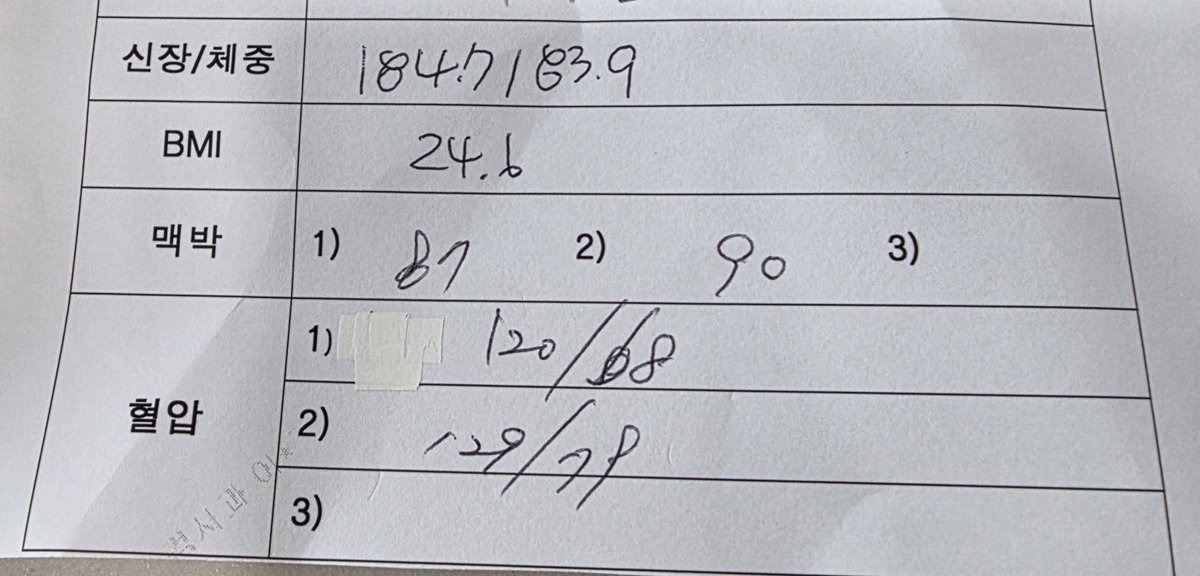 신장/체중 184.7/83.9
BMI 24.6
맥박 1) 87 2) 90 3)
혈압 1) 120/68
2) 129/79
3)